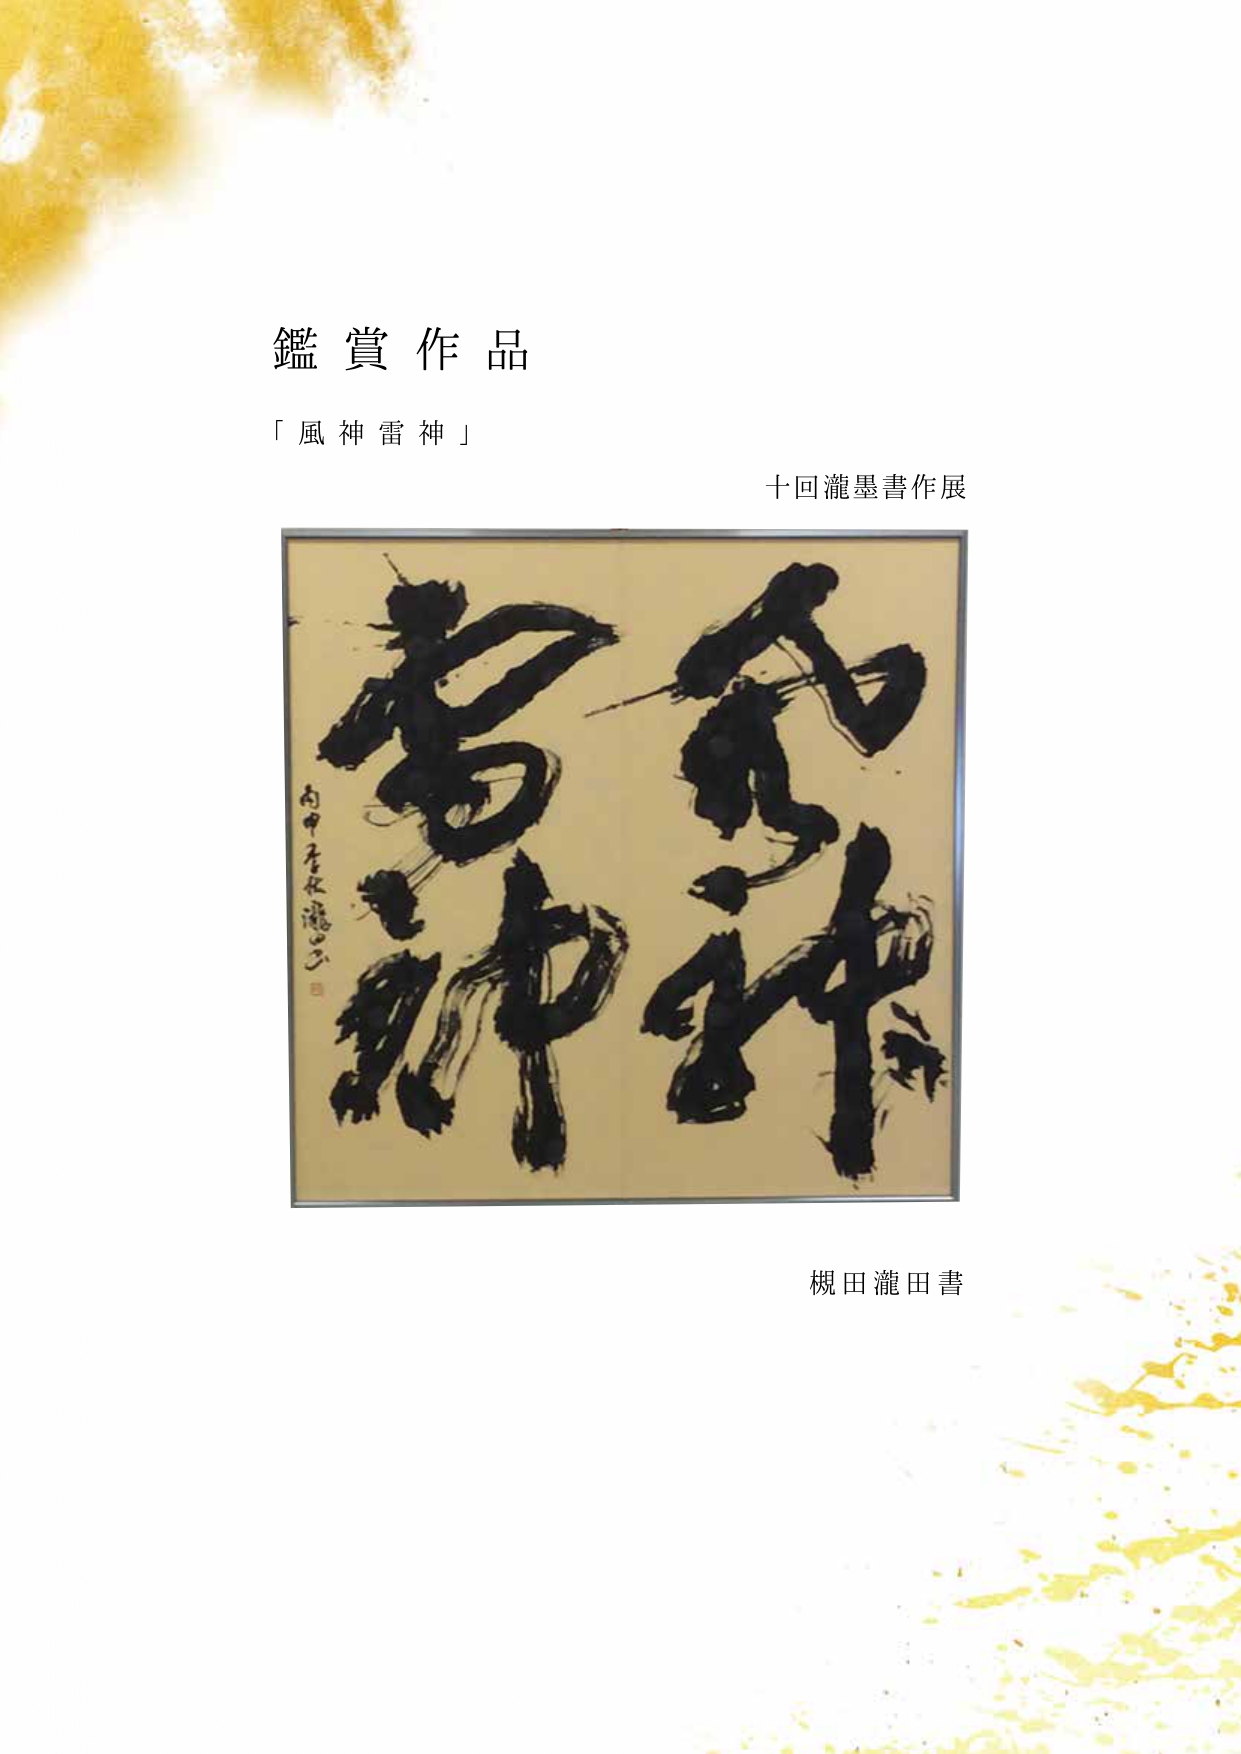 鑑賞作品
「風神雷神」
十回瀧墨書作展
風神
雷神
丙申季秋 瀧田書
槻田瀧田書